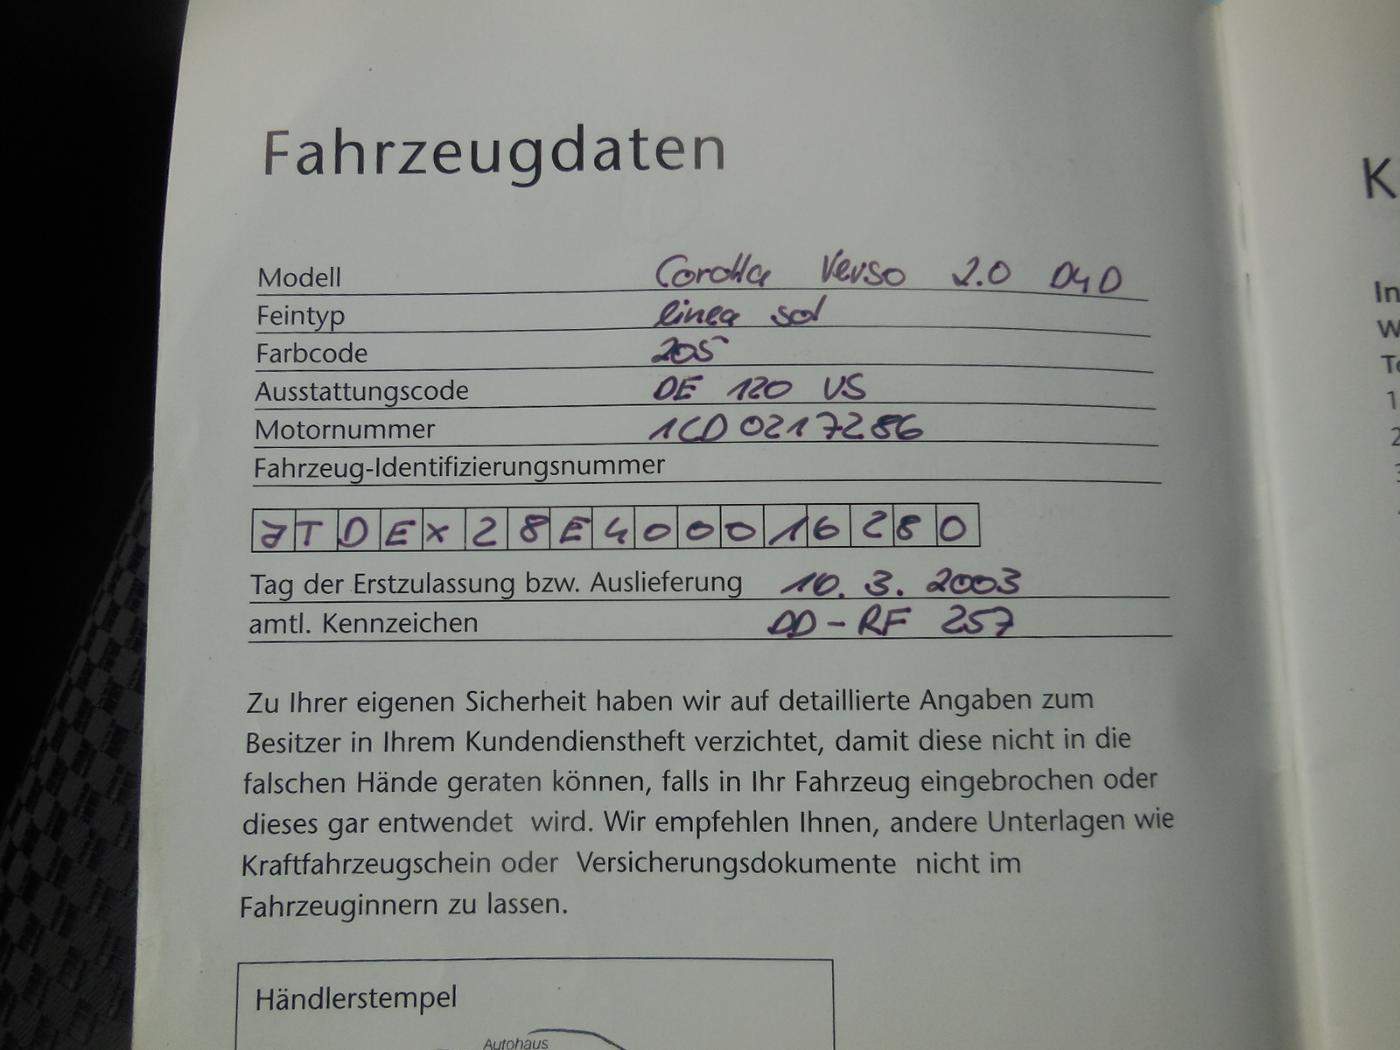 Fahrzeugdaten
Modell Corolla Verso 2.0 D4D
Feintyp linea sol
Farbcode 205
Ausstattungscode DE 120 VS
Motornummer 1CD 0217286
Fahrzeug-Identifizierungsnummer
JTDEX28E400016280
Tag der Erstzulassung bzw. Auslieferung 10. 3. 2003
amtl. Kennzeichen DD - RF 257
Zu Ihrer eigenen Sicherheit haben wir auf detaillierte Angaben zum
Besitzer in Ihrem Kundendienstheft verzichtet, damit diese nicht in die
falschen Hände geraten können, falls in Ihr Fahrzeug eingebrochen oder
dieses gar entwendet wird. Wir empfehlen Ihnen, andere Unterlagen wie
Kraftfahrzeugschein oder Versicherungsdokumente nicht im
Fahrzeuginnern zu lassen.
Händlerstempel
Autohaus
K
In
W
1
2